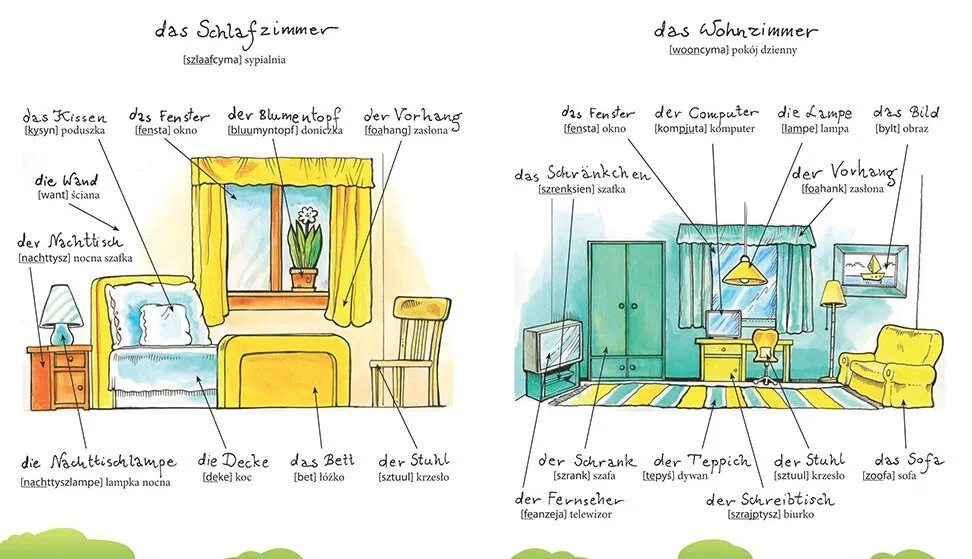 das Schlafzimmer
[szlaafcyma] sypialnia
das Kissen
[kysyn] poduszka
das Fenster
[fensta] okno
der Blumentopf
[bluumyntopf] doniczka
der Vorhang
[foahang] zasłona
die Wand
[want] ściana
der Nachttisch
[nachttysz] nocna szafka
die Nachttischlampe
[nachttyszlampe] lampka nocna
die Decke
[deke] koc
das Bett
[bet] łóżko
der Stuhl
[sztuul] krzesło
das Wohnzimmer
[wooncyma] pokój dzienny
das Fenster
[fensta] okno
der Computer
[kompjuta] komputer
die Lampe
[lampe] lampa
das Bild
[bylt] obraz
das Schränkchen
[szrenksien] szafka
der Vorhang
[foahank] zasłona
der Schrank
[szrank] szafa
der Teppich
[tepyś] dywan
der Stuhl
[sztuul] krzesło
das Sofa
[zoofa] sofa
der Fernseher
[feanzeja] telewizor
der Schreibtisch
[szrajptysz] biurko